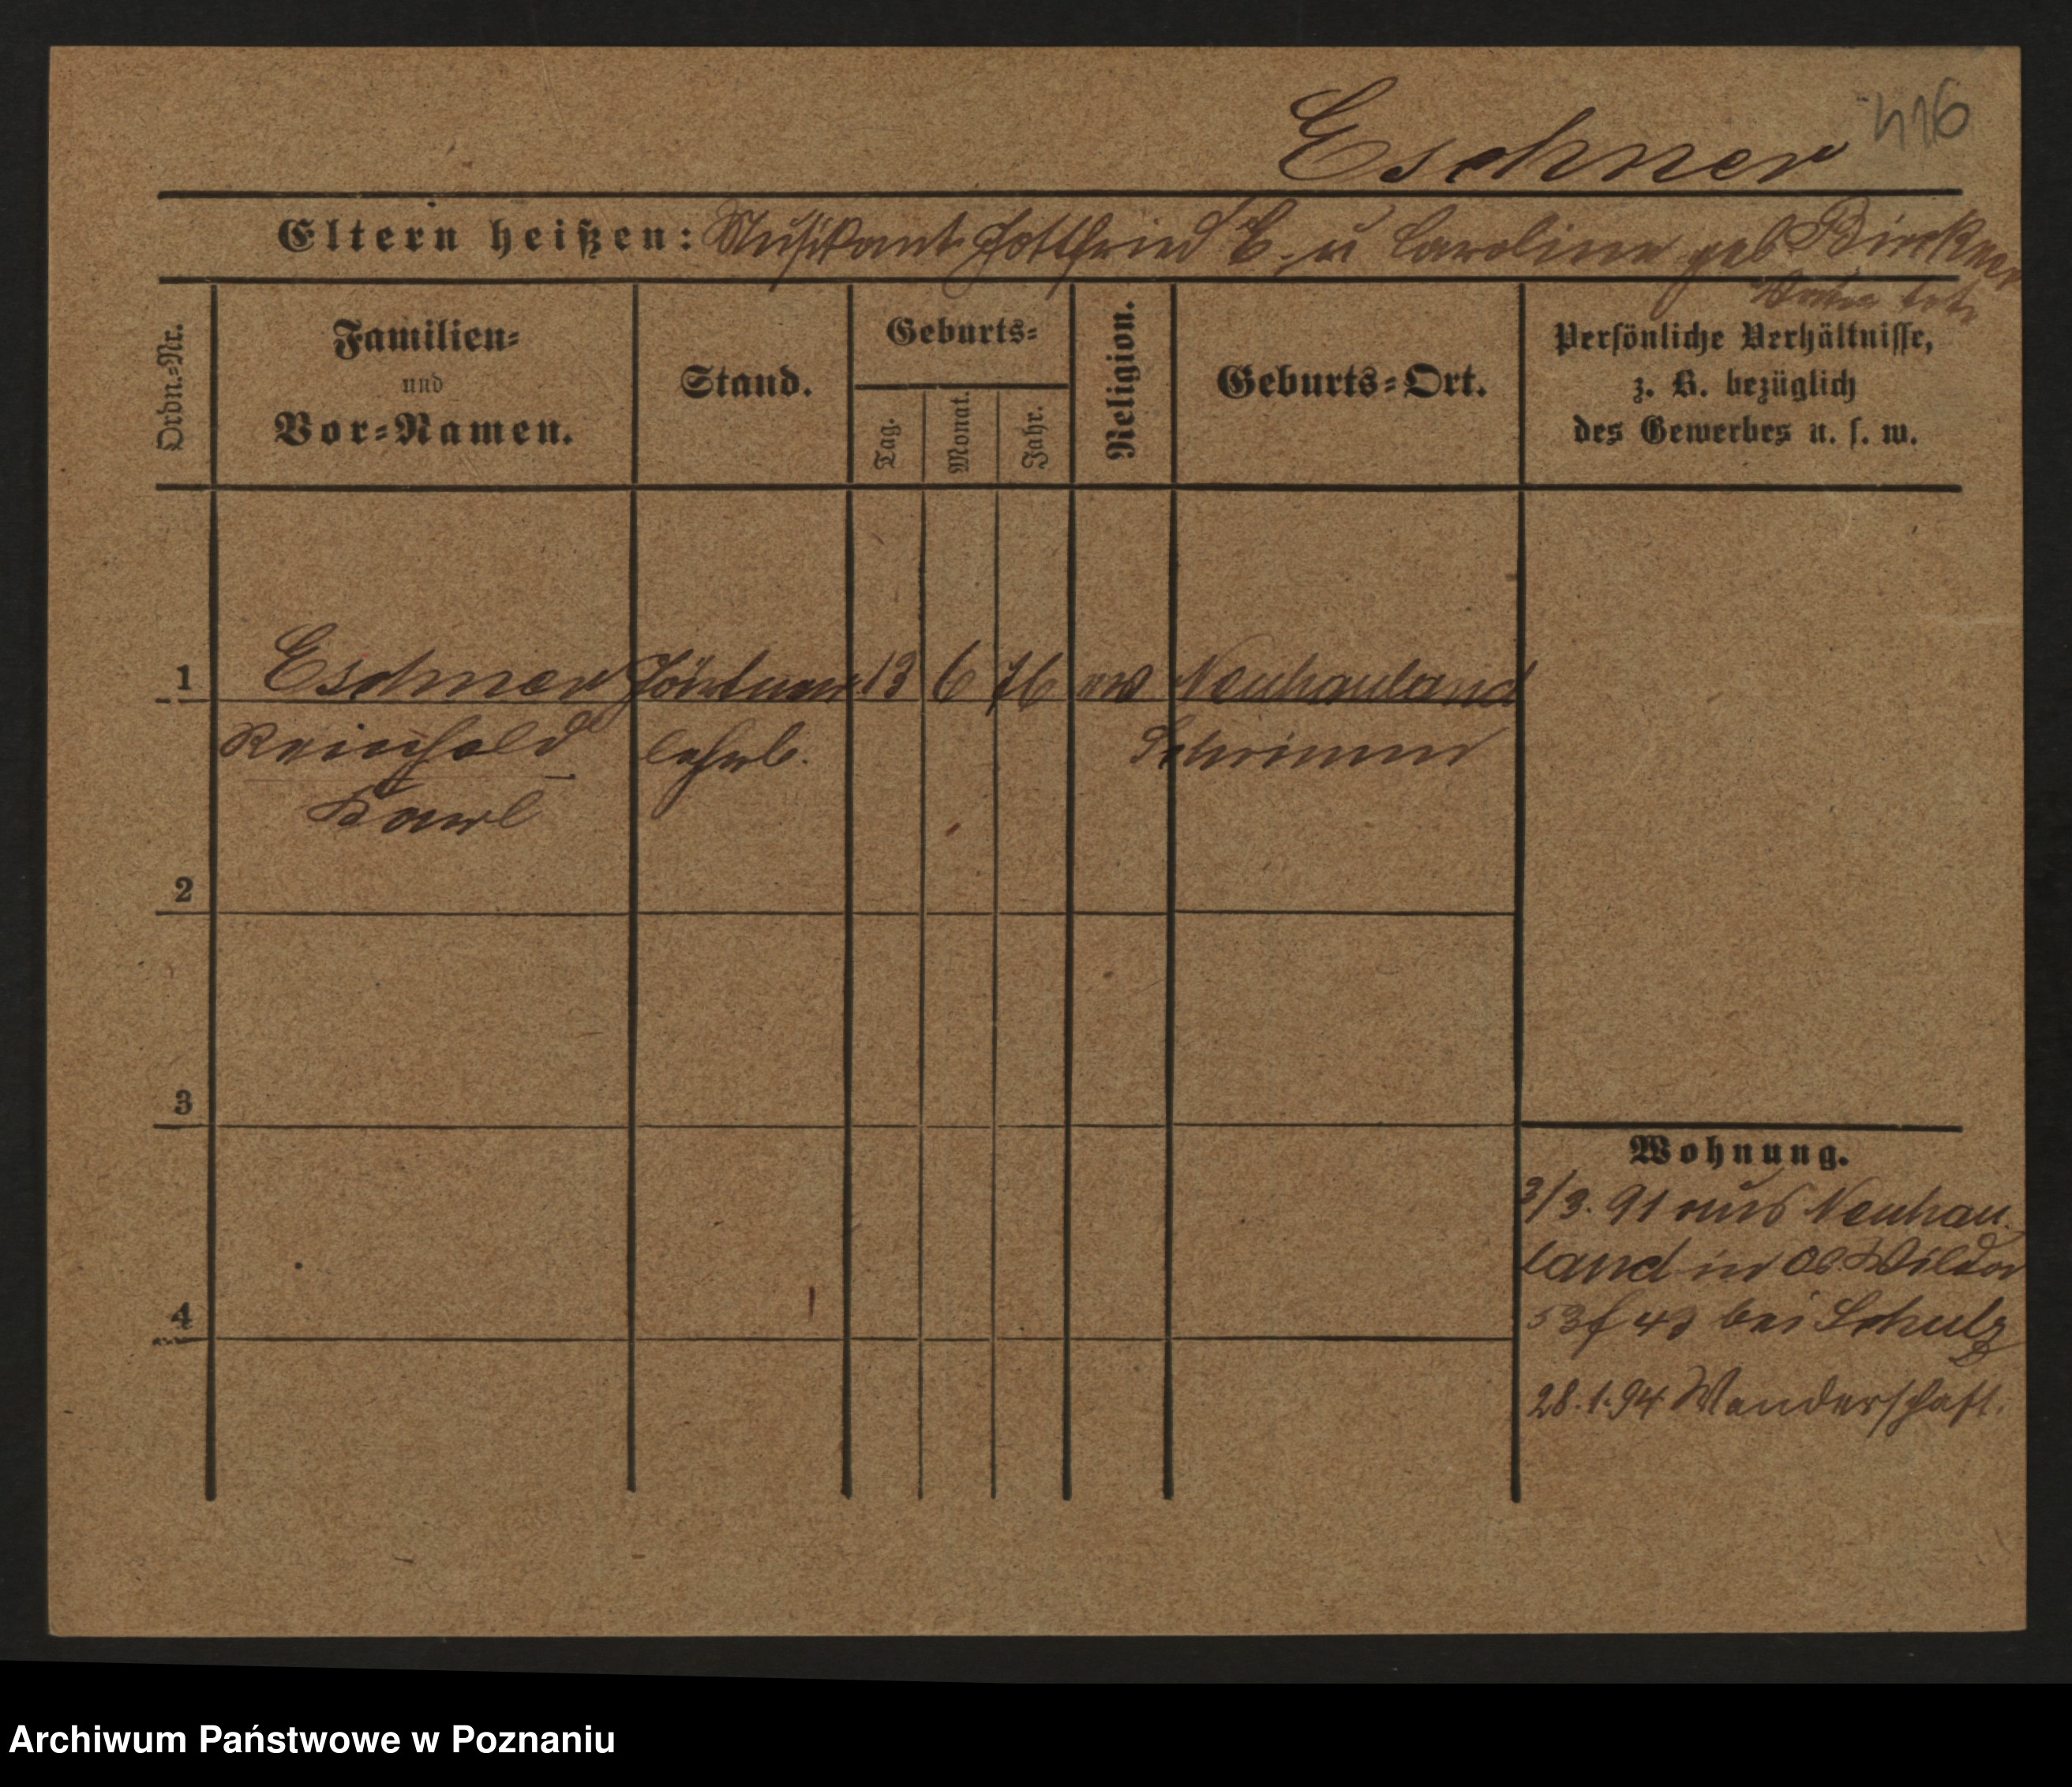 416
Eschner
Eltern heißen: Musikant Gottfried E. u Caroline geb Birckner
Ordn.-Nr.
Familien-
und
Vor-Namen.
Stand.
Geburts-
Tag.
Monat.
Jahr.
Religion.
Geburts-Ort.
Persönliche Verhältnisse,
z. B. bezüglich
des Gewerbes u. s. w.
1 Eschner Gärtner 13 6 76 ev Neuhauland
Reinhold lehrl. Schrimm
Karl
2
3
4
Wohnung.
3/3. 91 aus Neuhau
land in Ob Wilda
43 bei Schulz
28.1.94 Wanderschaft.
Archiwum Państwowe w Poznaniu